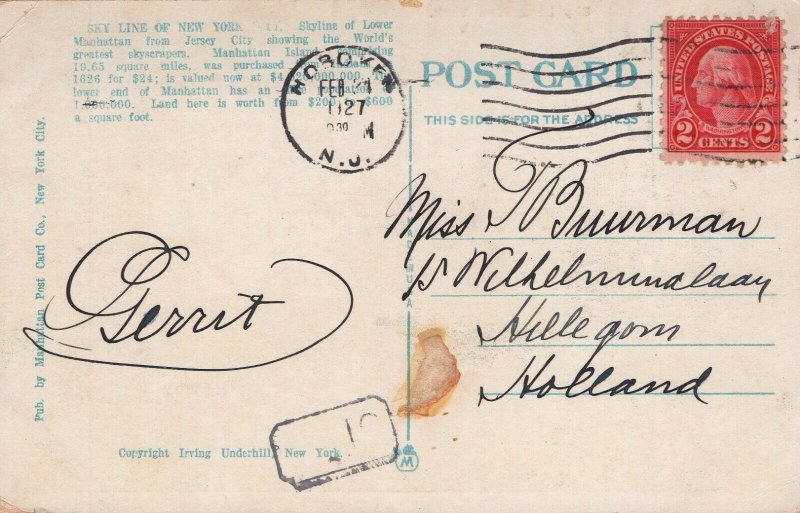 SKY LINE OF NEW YORK Skyline of Lower
Manhattan from Jersey City showing the World's
greatest skyscrapers. Manhattan Island, comprising
19.65 square miles, was purchased
1626 for $24; is valued now at
lower end of Manhattan has an
Land here is worth from $200 $600
a square foot.
HOBOKEN
FEB
1927
930 M
N.J.
POST CARD
THIS SIDE IS FOR THE ADDRESS
UNITED STATES POSTAGE
WASHINGTON
2 CENTS 2
Miss T Buurman
15 Wilhelminalaan
Hillegom
Holland
Gerrit
Pub. by Manhattan Post Card Co., New York City.
Copyright Irving Underhill, New York.
M